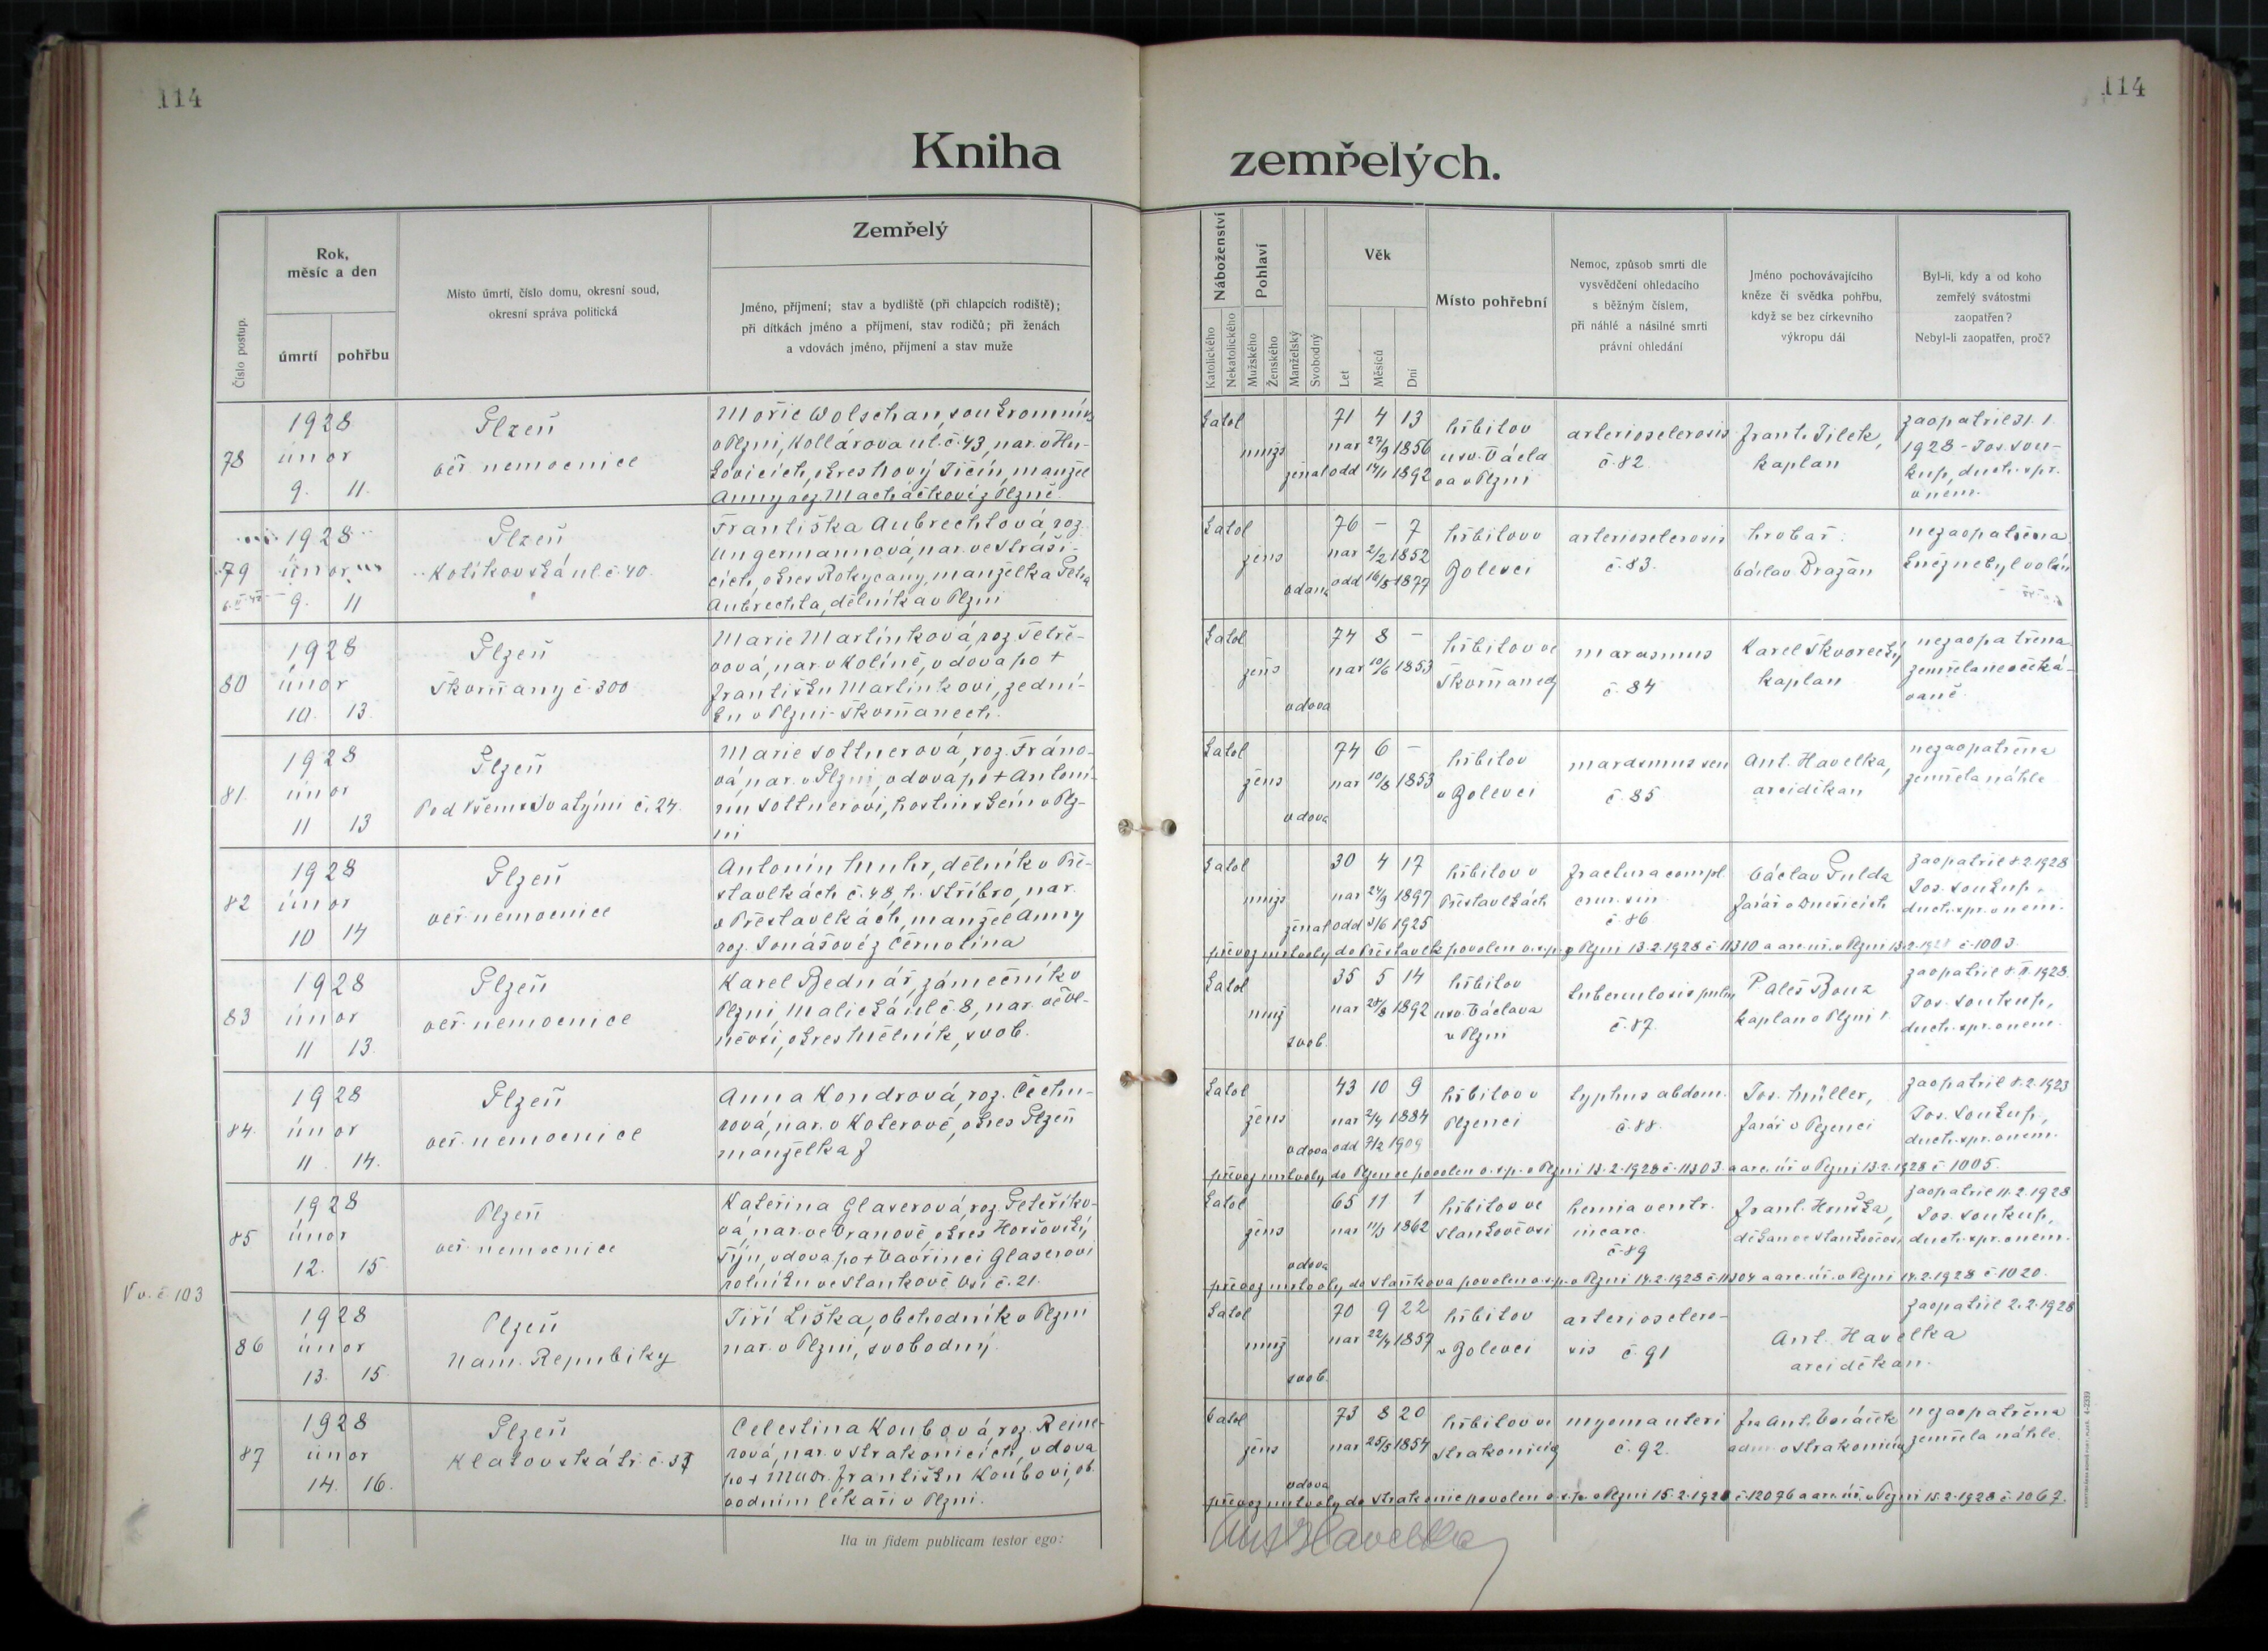 114
114
Kniha
zemřelých.
Číslo postup.
Rok,
měsíc a den
úmrtí
pohřbu
Místo úmrtí, číslo domu, okresní soud,
okresní správa politická
Zemřelý
Jméno, příjmení; stav a bydliště (při chlapcích rodiště);
při dítkách jméno a příjmení, stav rodičů; při ženách
a vdovách jméno, příjmení a stav muže
Náboženství
Katolického
Nekatolického
Pohlaví
Mužského
Ženského
Manželský
Svobodný
Věk
Let
Měsíců
Dní
Místo pohřební
Nemoc, způsob smrti dle
vysvědčení ohledacího
s běžným číslem,
při náhlé a násilné smrti
právní ohledání
Jméno pochovávajícího
kněze či svědka pohřbu,
když se bez církevního
výkropu dál
Byl-li, kdy a od koho
zemřelý svátostmi
zaopatřen?
Nebyl-li zaopatřen, proč?
78
1928
únor
9. 11.
Plzeň
veř. nemocnice
Mořic Wolschan, soukromník
v Plzni, Kollárova ul. č. 43, nar. v Hu-
kovicích, okres Nový Jičín, manžel
Anny roz. Macháčkové z Plzně
katol
mužs
ženat
71 4 13
nar 27/9 1856
odd 14/11 1892
hřbitov
u sv. Václa
va v Plzni
arteriosclerosis
č. 82.
Frant. Jílek,
kaplan
zaopatřil 31. 1.
1928 - Jos. Sou-
kup, duch. spr.
v nem.
79
1928
únor
9. 11
Plzeň
Kotíkovská ul. č. 40.
Františka Aubrechtová roz.
Ungermannová, nar. ve Straši-
cích, okres Rokycany, manželka Petra
Aubrechta, dělníka v Plzni
katol
žens
vdaná
76 - 7
nar 2/2 1852
odd 16/5 1877
hřbitov v
Bolevci
arteriosclerosis
č. 83.
hrobař:
Václav Dražan
nezaopatřena
kněz nebyl volán
80
1928
únor
10. 13.
Plzeň
Skvrňany č. 300
Marie Martínková, roz. Tetře-
vová, nar. v Kolíně, vdova po +
Františku Martínkovi, zední-
ku v Plzni-Skvrňanech.
katol
žens
vdova
74 8 -
nar 10/6 1853
hřbitov ve
Skvrňanech
marasmus
č. 84
Karel Škvorecký,
kaplan
nezaopatřena
zemřela neočeká-
vaně.
81.
1928
únor
11 13
Plzeň
Pod Všemi Svatými č. 24.
Marie Sottnerová, roz. Fráno-
vá, nar. v Plzni, vdova po + Antoní-
nu Sottnerovi, hostinském v Plz-
ni
katol
žens
vdova
74 6 -
nar 10/8 1853
hřbitov
v Bolevci
marasmus sen
č. 85
Ant. Havelka,
arciděkan
nezaopatřena
zemřela náhle
82
1928
únor
10 14
Plzeň
veř. nemocnice
Antonín Muhr, dělník v Pře-
stavlkách č. 48, h. Stříbro, nar.
v Přestavlkách, manžel Anny
roz. Jonášové z Černotína
katol
mužs
ženat
30 4 17
nar 24/9 1897
odd 3/6 1925
hřbitov v
Přestavlkách
fractura compl.
crur. sin.
č. 86
Václav Pulda
farář v Dnešicích
zaopatřil 8.2.1928
Jos. Soukup,
duch. spr. v nem.
převoz mrtvoly do Přestavlk povolen o.s.p. v Plzni 13.2.1928 č 11310 a arc. úř. v Plzni 13.2.1928 č. 1003.
83
1928
únor
11 13.
Plzeň
veř. nemocnice
Karel Bednář, zámečník v
Plzni, Malická ul. č. 8, nar. ve
okres Mělník, svob.
katol
muž
svob.
35 5 14
nar 28/8 1892
hřbitov
u sv. Václava
v Plzni
tuberculosis pulm
č. 87.
Kaplan v Plzni
zaopatřil 8.II.1928.
Jos. Soukup,
duch. spr. v nem.
84.
1928
únor
11. 14.
Plzeň
veř. nemocnice
Anna Kondrová, roz. Čechu-
rová, nar. v Koterově, okres Plzeň
manželka
katol
žens
vdova
43 10 9
nar 2/4 1884
odd 7/2 1909
hřbitov v
Plzenci
typhus abdom.
č. 88.
Jos. Müller,
farář v Plzenci
zaopatřil 8.2.1923
Jos. Soukup,
duch. spr. v nem.
převoz mrtvoly do Plzence povolen o.s.p. v Plzni 13.2.1928 č. 11303. a arc. úř. v Plzni 13.2.1928 č 1005.
85
1928
únor
12. 15
Plzeň
veř. nemocnice
Kateřina Glaserová, roz. Peteříko-
vá, nar. ve Vranově, okres Horšovský
Týn, vdova po + Vavřinci Glaserovi
rolníku ve Staňkově Vsi č. 21.
katol
žens
vdova
65 11 1
nar 11/3 1862
hřbitov ve
Staňkově vsi
hernia ventr.
incarc.
č. 89
Frant. Hruška,
děkan ve Staňkově vsi
zaopatřil 11.2.1928
Jos. Soukup,
duch. spr. v nem.
převoz mrtvoly do Staňkova povolen o.s.p. v Plzni 14.2.1928 č. 11804 a arc. úř. v Plzni 14.2.1928 č 1020.
V v. č 103
86
1928
únor
13. 15
Plzeň
Nám. Republiky
Jiří Liška, obchodník v Plzni
nar. v Plzni, svobodný.
katol
muž
svob.
70 9 22
nar 22/4 1857
hřbitov
v Bolevci
arterioscléro-
sis č. 91
Ant. Havelka
arciděkan.
zaopatřil 2.2.1928
87
1928
únor
14. 16.
Plzeň
Klatovská tř. č.
Celestina Koubová, roz. Reine-
rová, nar. v Strakonicích, vdova
po + MUDr. Františku Koubovi, ob-
vodním lékaři v Plzni.
katol
žens
vdova
73 8 20
nar 25/5 1854
hřbitov ve
Strakonicích
myoma uteri
č. 92.
adm. v Strakonicích
nezaopatřena
zemřela náhle.
převoz mrtvoly do Strakonic povolen o.s.p. v Plzni 15.2.1928 č. 12076 a arc. úř. v Plzni 15.2.1928 č. 1067.
Ita in fidem publicam testor ego:
Ant Havelka